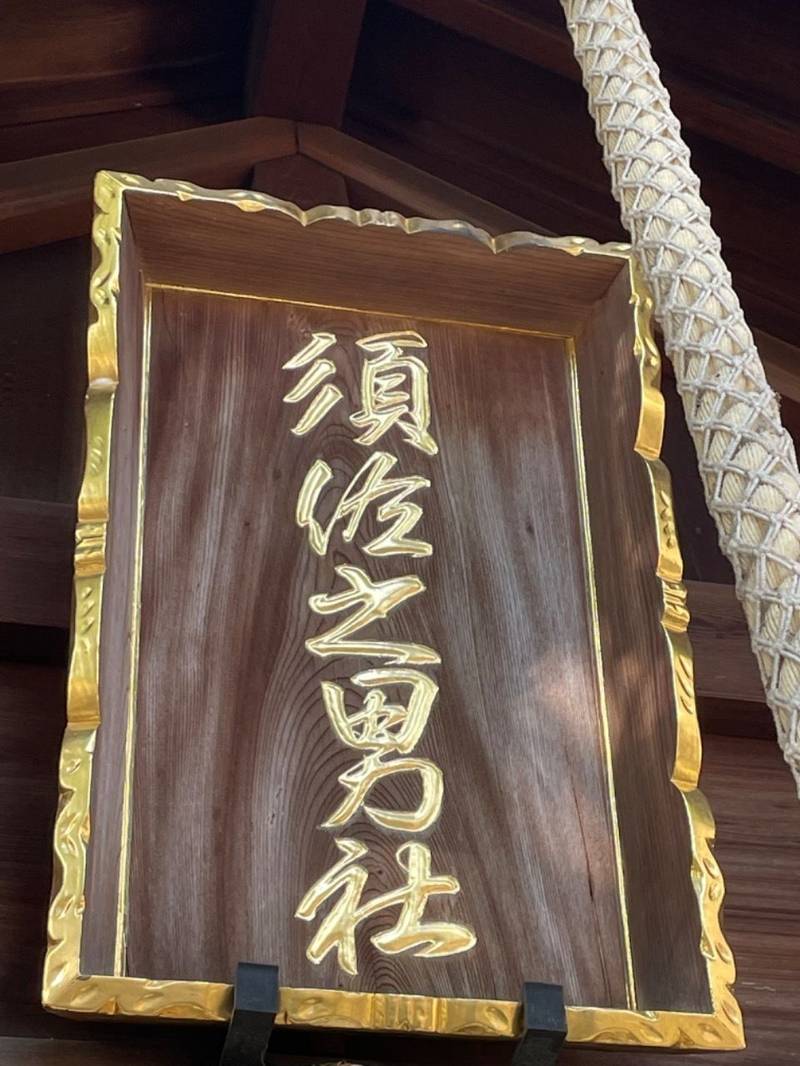 須佐之男社